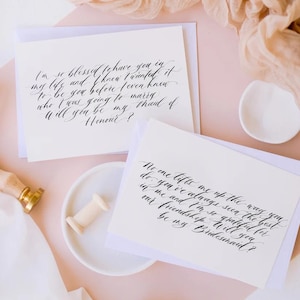 I'm so blessed to have you in
my life and I have wanted it
to be you before I even knew
who I was going to marry
Will you be my Maid of
Honour?
No one lifts me up the way you
do, you've always seen the best
in me and I'm so grateful for
our friendship. Will you
be my Bridesmaid?